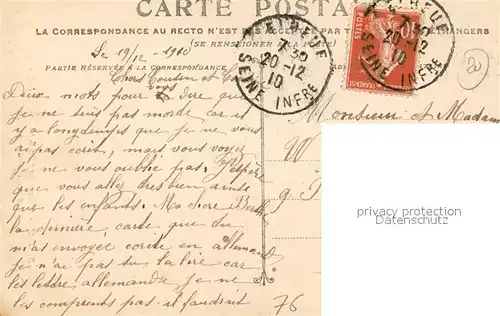 CARTE POSTALE
LA CORRESPONDANCE AU RECTO N'EST PAS
ÉTRANGERS
(SE RENSEIGNER
Le 19/12 1910
PARTIE RÉSERVÉE A LA CORRESPONDANCE
Chers Cousin et
Deux mots pour vous dire que
je ne suis pas morte car il
y a longtemps que je ne vous
ai pas écrit, mais vous voyez
je ne vous oublie pas. J'espère
que vous allez tres bien ainsi
que les enfants. Ma chere Berthe
la derniere carte que tu
m'as envoyee ecrite en allemand
je n'ai pas su la lire car
les lettre allemande je ne
les comprends pas il faudrait
7 30
20-12
10
SEINE INFRE
20-12
10
SEINE INFRE
10
Monsieur et Madame
W
76
20
privacy protection